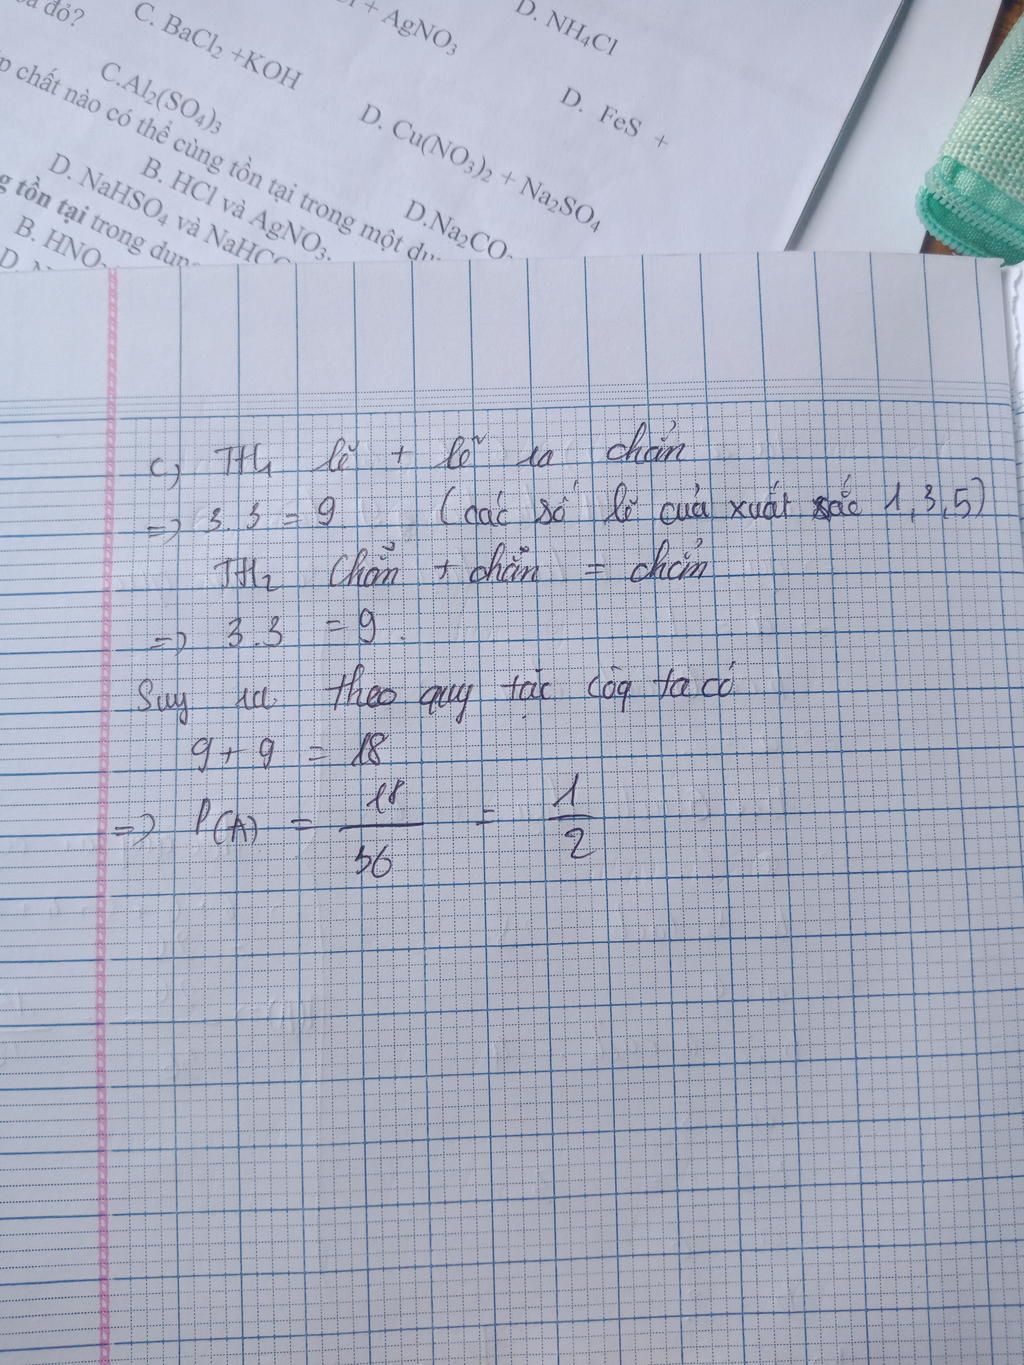 đỏ?
C. BaCl₂ +KOH
+ AgNO₃
D. NH₄Cl
C.Al₂(SO₄)₃
D. Cu(NO₃)₂ + Na₂SO₄
D. FeS +
p chất nào có thể cùng tồn tại trong một du
B. HCl và AgNO₃.
D.Na₂CO
D. NaHSO₄ và NaHC
g tồn tại trong dun
B. HNO
D.
c) TH₁ lẽ + lẽ ra chẳn
=> 3.3 = 9 (các số lẽ của xuất sắc 1,3,5)
TH₂ Chẵn + chẵn = chẳn
=> 3.3 = 9.
Suy ra theo quy tắc cộg ta có
9 + 9 = 18
=> P(A) = 18/36 = 1/2